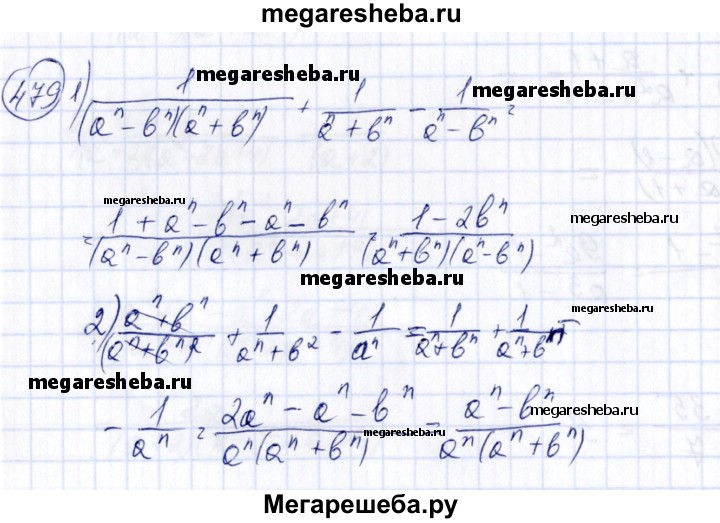 megaresheba.ru
479 1) 1/((aⁿ - bⁿ)(aⁿ + bⁿ)) + 1/(aⁿ + bⁿ) - 1/(aⁿ - bⁿ) =
megaresheba.ru
megaresheba.ru
megaresheba.ru
= (1 + aⁿ - bⁿ - aⁿ - bⁿ)/((aⁿ - bⁿ)(aⁿ + bⁿ)) = (1 - 2bⁿ)/((aⁿ + bⁿ)(aⁿ - bⁿ))
megaresheba.ru
megaresheba.ru
2) (aⁿ + bⁿ)/(aⁿ + bⁿ)² + 1/(aⁿ + b²) - 1/aⁿ = 1/(aⁿ + bⁿ) + 1/(aⁿ + bⁿ) -
megaresheba.ru
megaresheba.ru
- 1/aⁿ = (2aⁿ - aⁿ - bⁿ)/(aⁿ(aⁿ + bⁿ)) = (aⁿ - bⁿ)/(aⁿ(aⁿ + bⁿ))
megaresheba.ru
megaresheba.ru
megaresheba.ru
Мегарешеба.ру